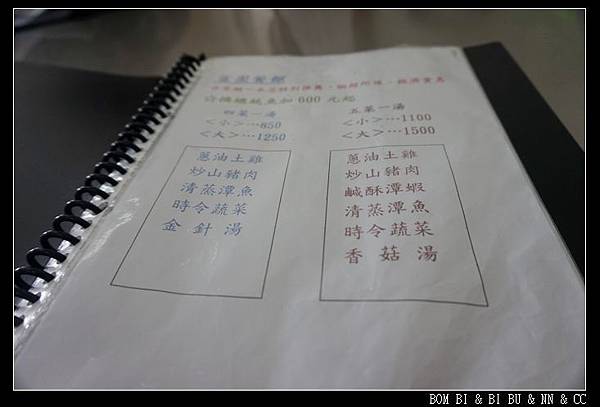 可換總統魚加 600 元起
四菜一湯
<小>…850
<大>…1250
蔥油土雞
炒山豬肉
清蒸潭魚
時令蔬菜
金針湯
五菜一湯
<小>…1100
<大>…1500
蔥油土雞
炒山豬肉
鹹酥潭蝦
清蒸潭魚
時令蔬菜
香菇湯
BOM BI & BI BU & NN & CC